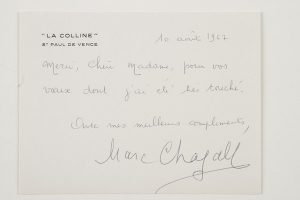 "LA COLLINE"
ST PAUL DE VENCE
10 août 1967
Merci, Chère Madame, pour vos
vœux dont j'ai été très touché.
Avec mes meilleurs compliments,
Marc Chagall